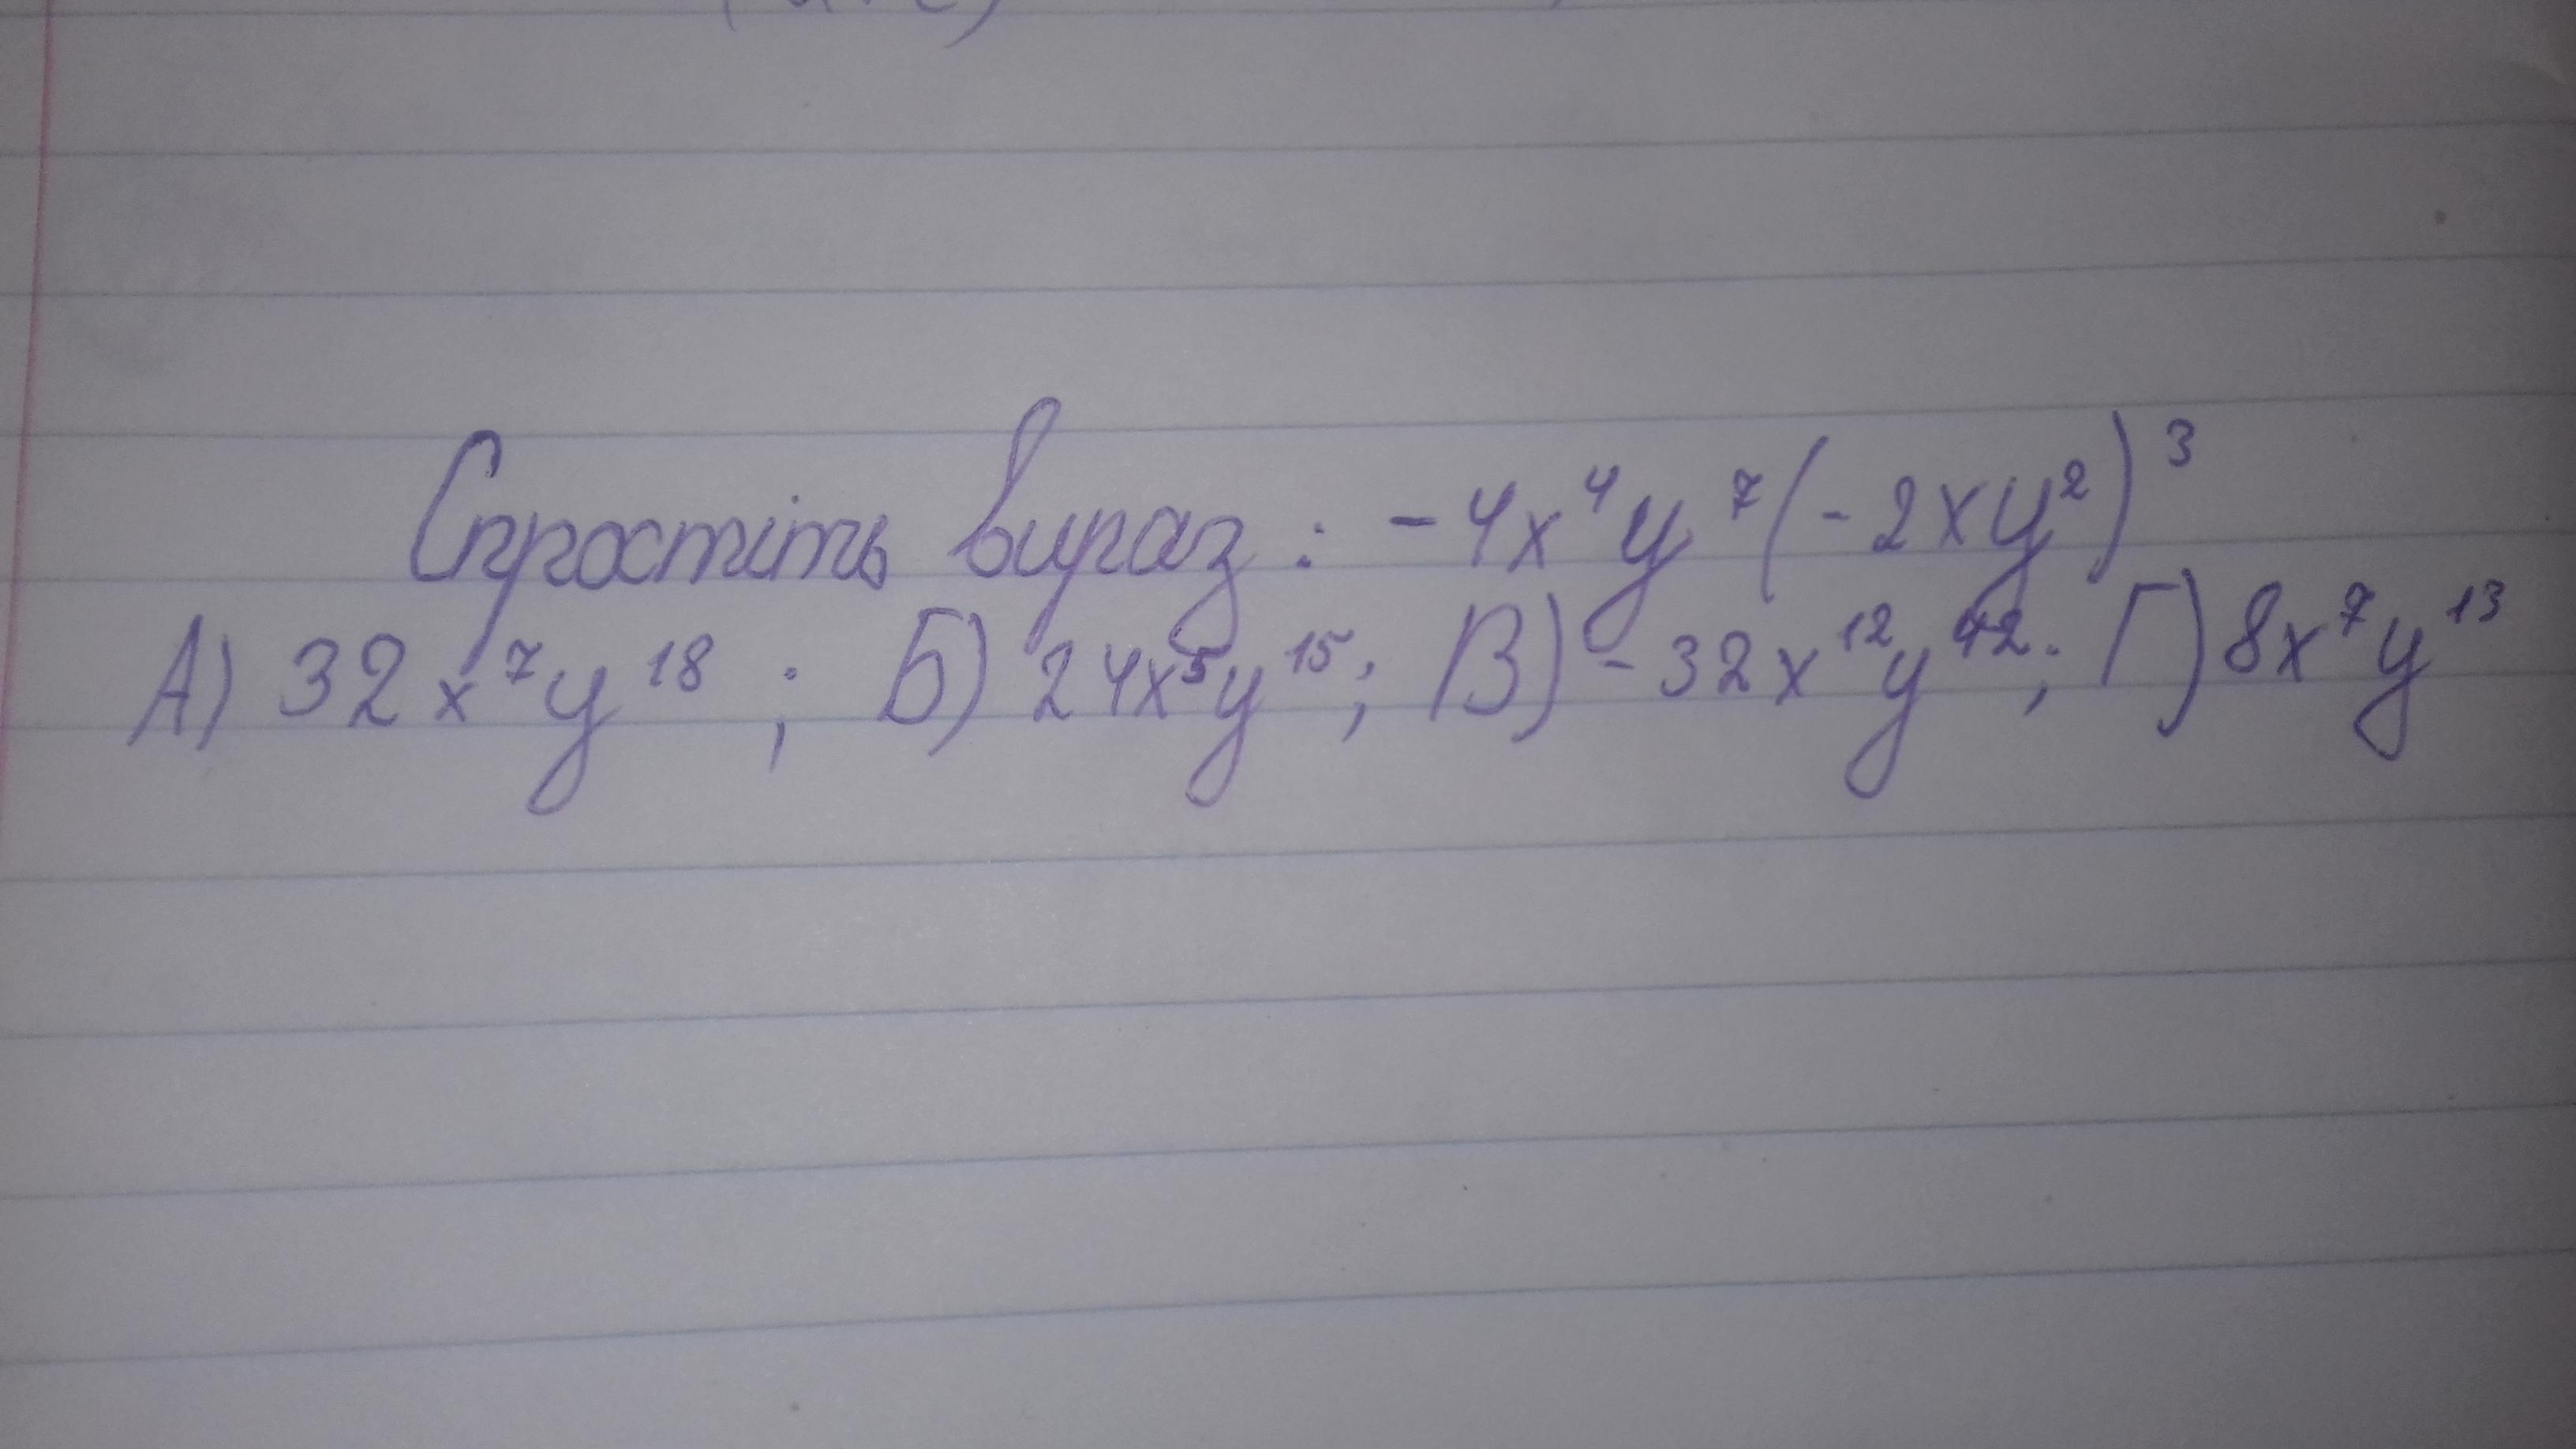 Спростіть вираз: -4x⁴y⁷(-2xy²)³
А) 32x⁷y¹⁸; Б) 24x⁵y¹⁵; В) -32x¹²y⁴²; Г) 8x⁷y¹³